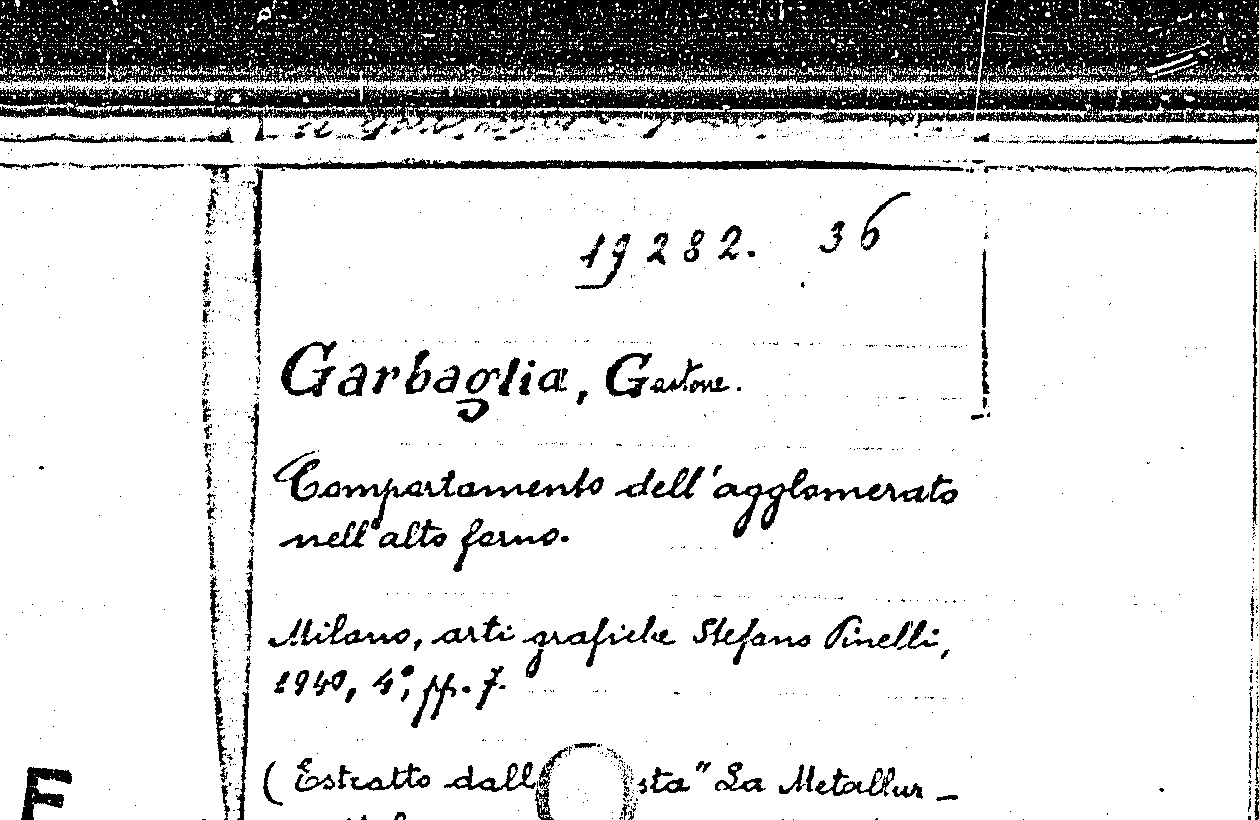 19282. 36
Garbaglia, Gastone.
Comportamento dell'agglomerato
nell'alto forno.
Milano, arti grafiche Stefano Pinelli,
1940, 4°, pp. 7.
(Estratto dall sta "La Metallur-
E